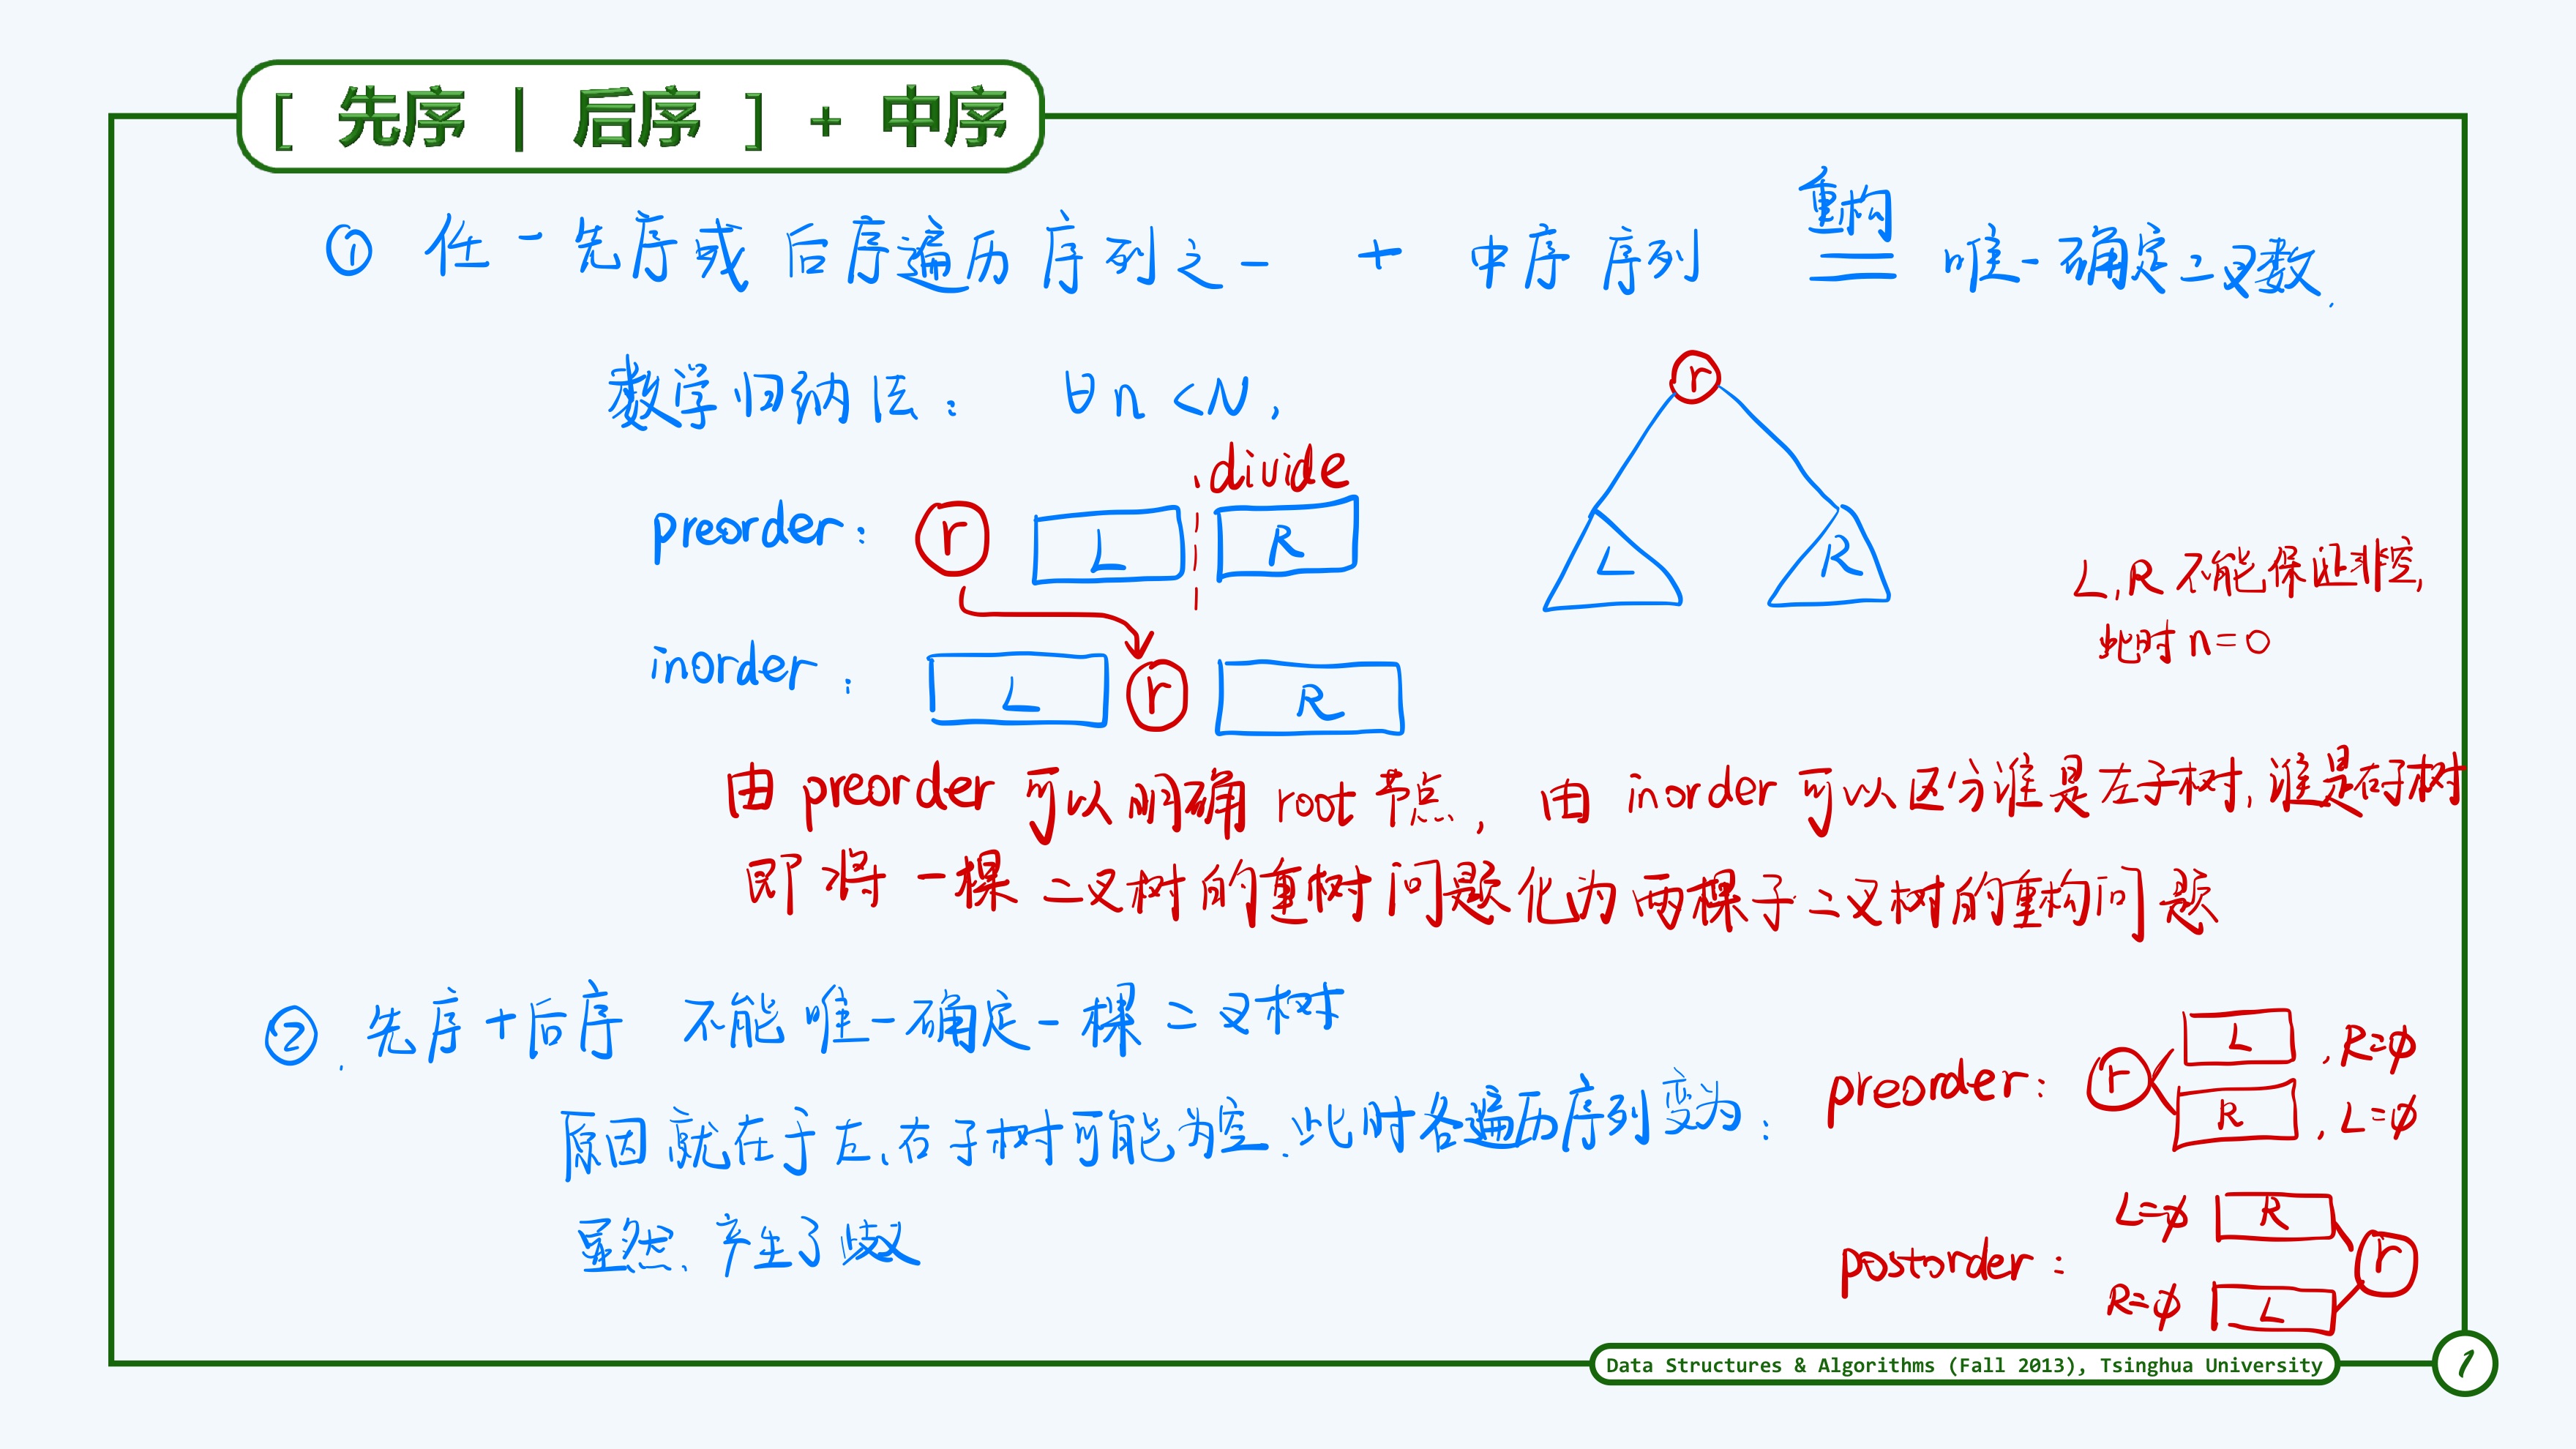 [ 先序 | 后序 ] + 中序
① 任一先序或后序遍历序列之一 + 中序序列 重构 唯一确定二叉数.
数学归纳法: ∀n<N,
r
divide
preorder: r L R
L R
L,R 不能保证非空,
此时 n=0
inorder: L r R
由 preorder 可以明确 root 节点, 由 inorder 可以区分谁是左子树, 谁是右子树
即将一棵二叉树的重树问题化为两棵子二叉树的重构问题
②. 先序+后序 不能唯一确定一棵二叉树
原因就在于左、右子树可能为空.此时各遍历序列变为:
preorder: r L , R=φ
R , L=φ
显然、产生了歧义
L=φ R
postorder: r
R=φ L
Data Structures & Algorithms (Fall 2013), Tsinghua University
1